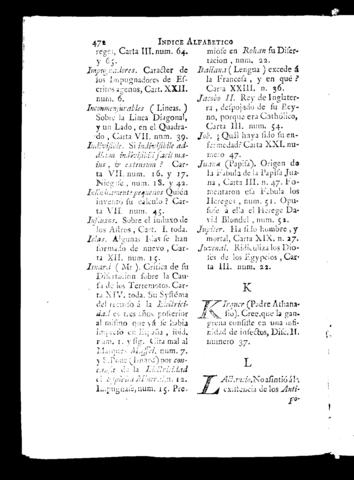 472 INDICE ALFABETICO
reges, Carta III. num. 64.
y 65.
Impugnadores. Caracter de
los Impugnadores de Es-
critos agenos, Cart. XXII.
num. 6.
Inconmensurables (Lineas.)
Sobre la Linea Diagonal,
y un Lado, en el Quadra-
do, Carta VII. num. 39.
Indivisible. Si indivisibile ad-
ditum indivisibili facit ma-
ius, & extensum? Car-
ta VII. num. 16. y 17.
Niegase, num. 18. y 42.
Infinitamente pequeño Quién
inventó su calculo? Carta
VII. num. 45.
Influxos. Sobre el influxo de
los Astros, Cart. I. toda.
Islas. Algunas Islas se han
formado de nuevo, Car-
ta XII. num. 15.
(Mr.) Critica de su
Disertacion sobre la Cau-
sa de los Terremotos, Carta
XIV. toda. Su Systéma
del recurso á la Electrici-
dad es tres años posterior
al mismo que yá se habia
impreso en España, ibid.
num. 1. y sig. Cita mal al
Marques Maffei, num. 7.
por con-
de la Electricidad
num. 12.
Impugnase, num. 15. Pre-
miose en Rohan su Diser-
tacion, num. 22.
Italiana (Lengua) excede á
la Francesa, y en qué?
Carta XXIII. n. 36.
Jacobo II. Rey de Inglater-
ra, despojado de su Rey-
no, porque era Cathólico,
Carta III. num. 54.
Job. ¿Quál haya sido su en-
fermedad? Carta XXI. nu-
mero 47.
Juana (Papisa). Origen de
la Fabula de la Papisa Jua-
na, Carta III. n. 47. Fo-
mentaron esa Fabula los
Hereges, num. 51. Opu-
sose á ella el Herege Da-
vid Blondel, num. 52.
Jupiter. Ha sido hombre, y
mortal, Carta XIX. n. 27.
Juvenal. Ridiculiza los Dio-
ses de los Egypcios, Car-
ta III. num. 22.
K
Kirquer (Padre Athana-
sio). Cree, que la gan-
grena consiste en una infi-
nidad de insectos, Disc. II.
numero 37.
L
Lactancio, No asintió á la
existencia de los Anti-
po-